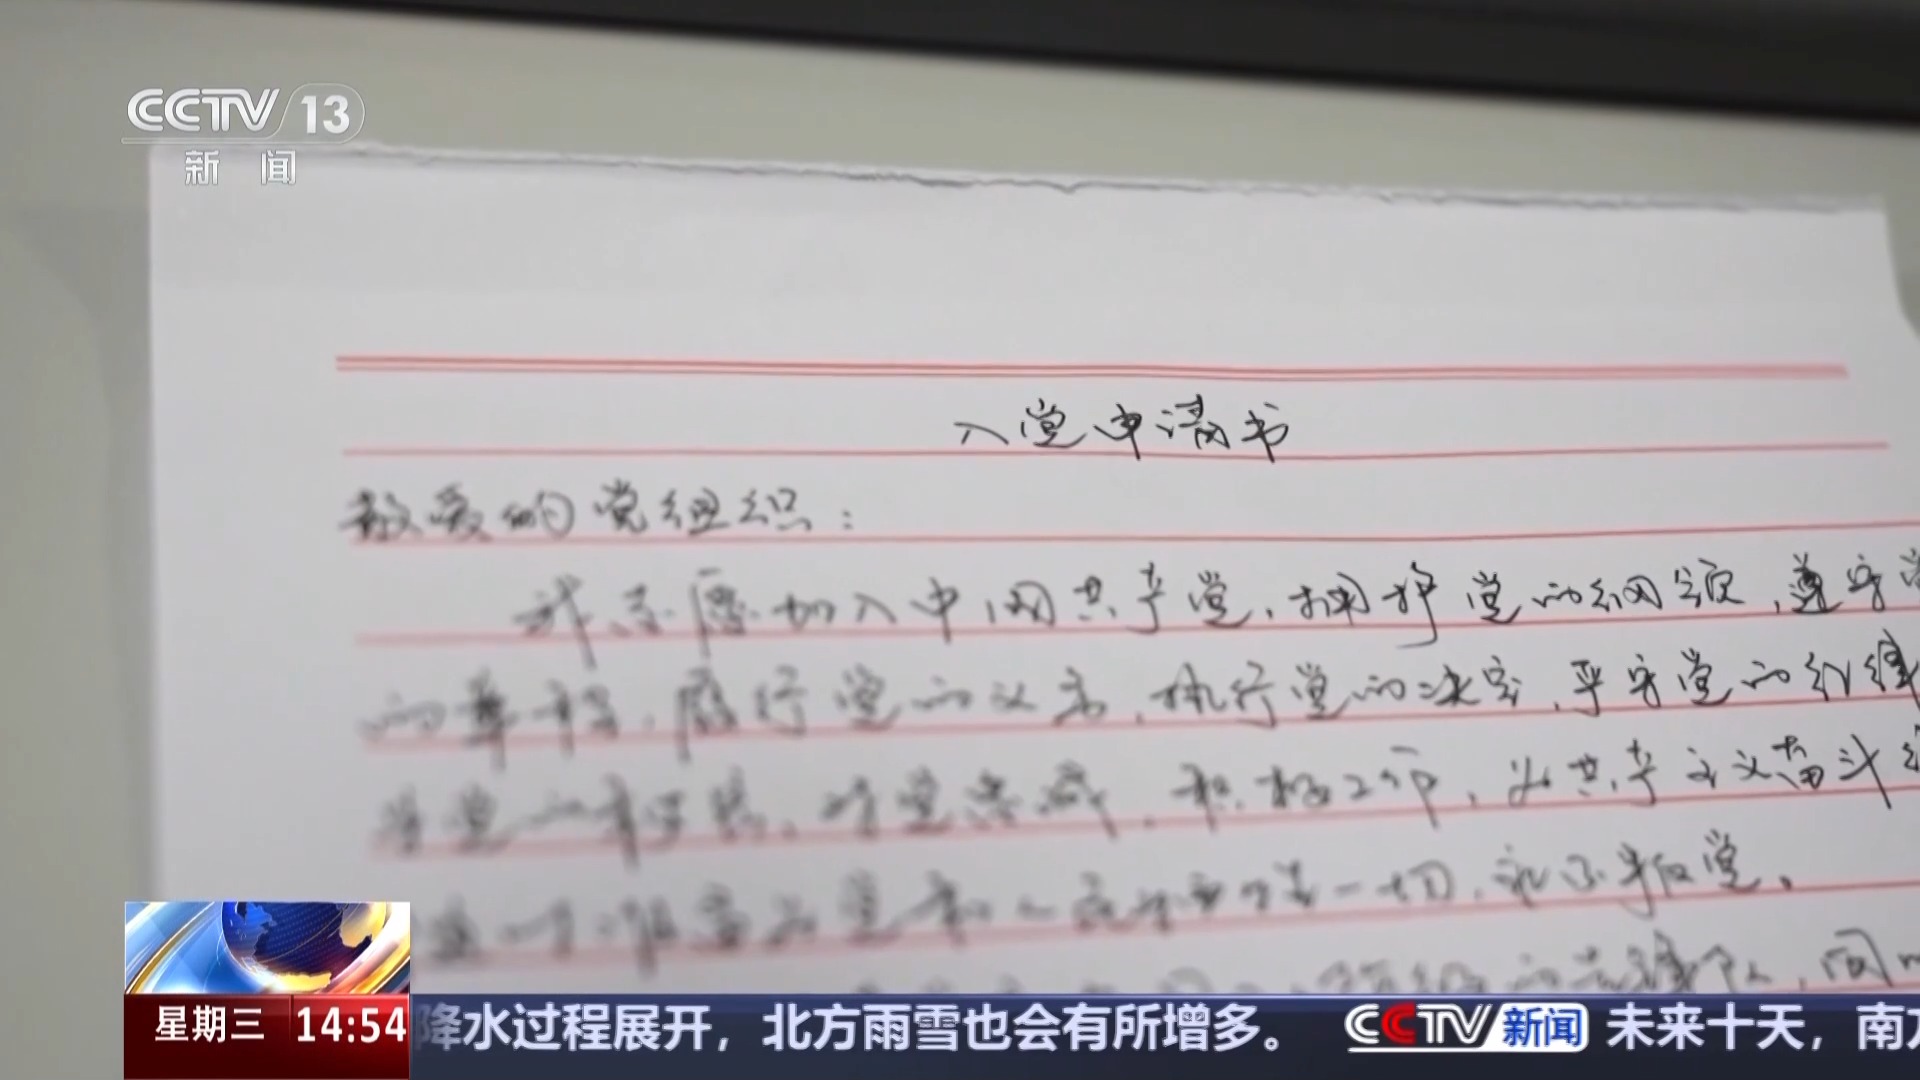 CCTV 13
新闻
入党申请书
敬爱的党组织：
我志愿加入中国共产党，拥护党的纲领，遵守党
的章程，履行党的义务，执行党的决定，严守党的纪律
保守党的秘密，对党忠诚，积极工作，为共产主义奋斗终
党和人民牺牲一切，永不叛党。
星期三 14:54
降水过程展开，北方雨雪也会有所增多。 CCTV新闻 未来十天，南方